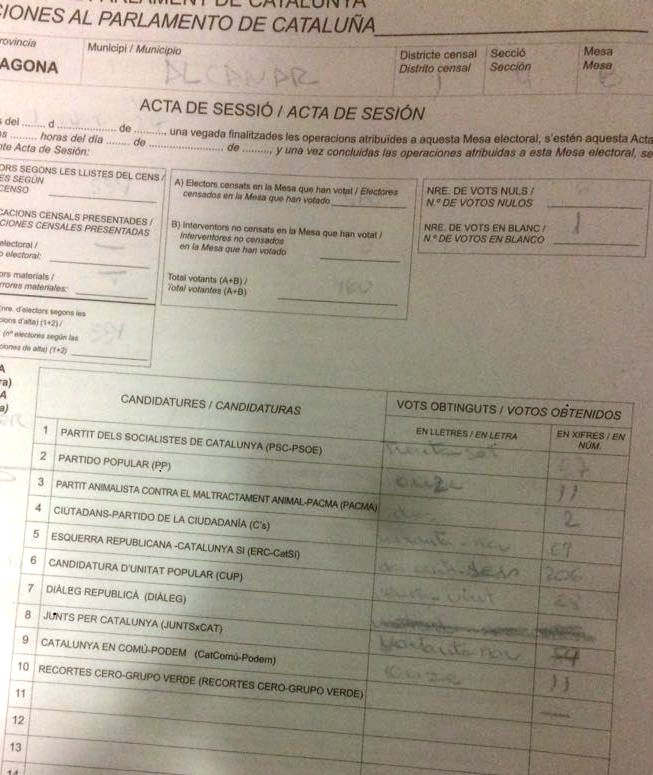 PARLAMENT DE CATALUNYA
CIONES AL PARLAMENTO DE CATALUÑA
rovíncia
AGONA
Municipi / Municipio
ALCANAR
Districte censal
Distrito censal
Secció
Sección
Mesa
Mesa
B
ACTA DE SESSIÓ / ACTA DE SESIÓN
s del ..... d ............... de ........., una vegada finalitzades les operacions atribuïdes a aquesta Mesa electoral, s'estén aquesta Acta
as ........ horas del día ....... de .................... de ........., y una vez concluidas las operaciones atribuidas a esta Mesa electoral, se
nte Acta de Sesión:
ORS SEGONS LES LLISTES DEL CENS /
ES SEGÚN
CENSO
CACIONS CENSALS PRESENTADES /
CIONES CENSALES PRESENTADAS
electoral /
o electoral:
ors materials /
rrores materiales:
(nre. d'electors segons les
cions d'alta) (1+2) /
(nº electores según las
ciones de alta) (1+2)
A) Electors censats en la Mesa que han votat / Electores
censados en la Mesa que han votado
B) Interventors no censats en la Mesa que han votat /
Interventores no censados
en la Mesa que han votado
Total votants (A+B) /
Total votantes (A+B)
NRE. DE VOTS NULS /
N.º DE VOTOS NULOS
NRE. DE VOTS EN BLANC /
N.º DE VOTOS EN BLANCO
1
CANDIDATURES / CANDIDATURAS
VOTS OBTINGUTS / VOTOS OBTENIDOS
EN LLETRES / EN LETRA
EN XIFRES / EN NÚM.
1 PARTIT DELS SOCIALISTES DE CATALUNYA (PSC-PSOE)
2 PARTIDO POPULAR (PP) onze 11
3 PARTIT ANIMALISTA CONTRA EL MALTRACTAMENT ANIMAL-PACMA (PACMA) dos 2
4 CIUTADANS-PARTIDO DE LA CIUDADANÍA (C's)
5 ESQUERRA REPUBLICANA -CATALUNYA SI (ERC-CatSí) 206
6 CANDIDATURA D'UNITAT POPULAR (CUP)
7 DIÀLEG REPUBLICÀ (DIÀLEG)
8 JUNTS PER CATALUNYA (JUNTSxCAT)
9 CATALUNYA EN COMÚ-PODEM (CatComú-Podem) onze 11
10 RECORTES CERO-GRUPO VERDE (RECORTES CERO-GRUPO VERDE)
11
12
13
14